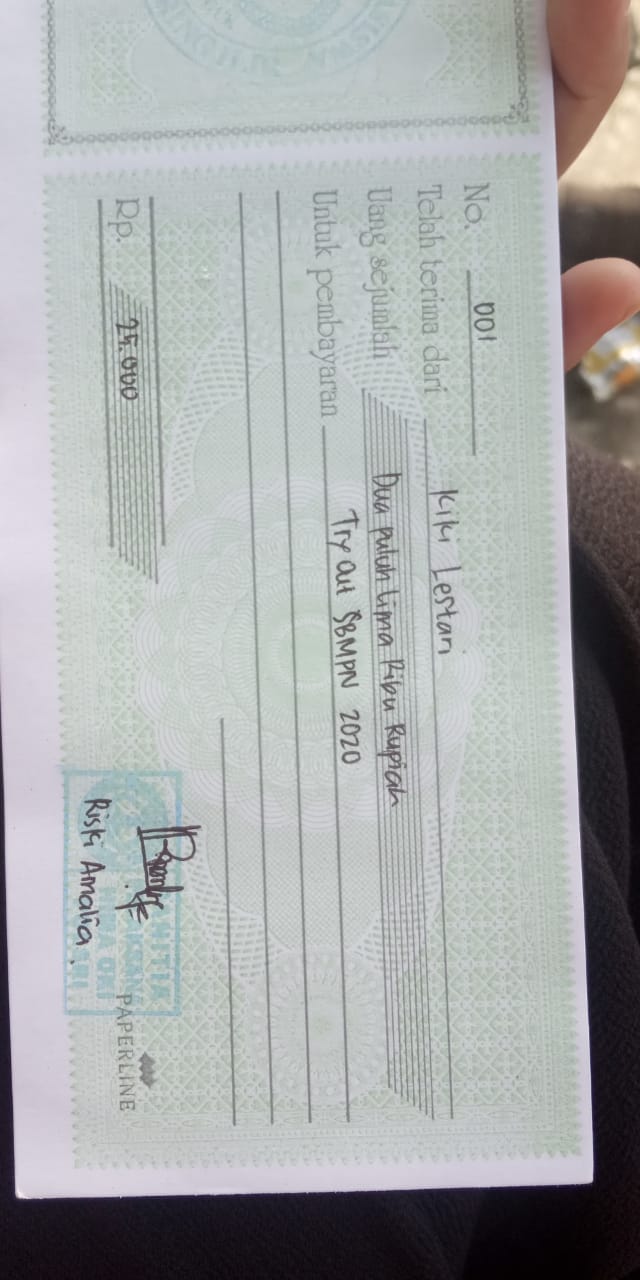 No. 001
Telah terima dari Kiki Lestari
Uang sejumlah Dua puluh Lima Ribu Rupiah
Untuk pembayaran Try Out SBMPN 2020
Rp. 25.000
Riski Amalia.
PAPERLINE